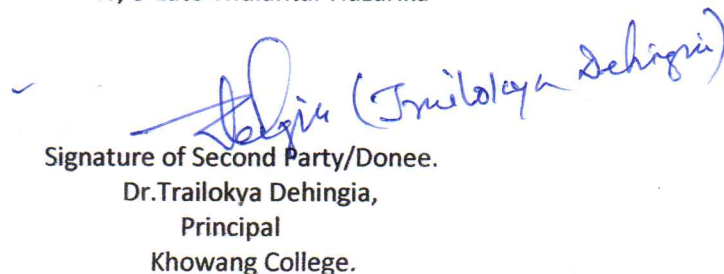 Dehingia (Trailokya Dehingia)
Signature of Second Party/Donee.
Dr.Trailokya Dehingia,
Principal
Khowang College.